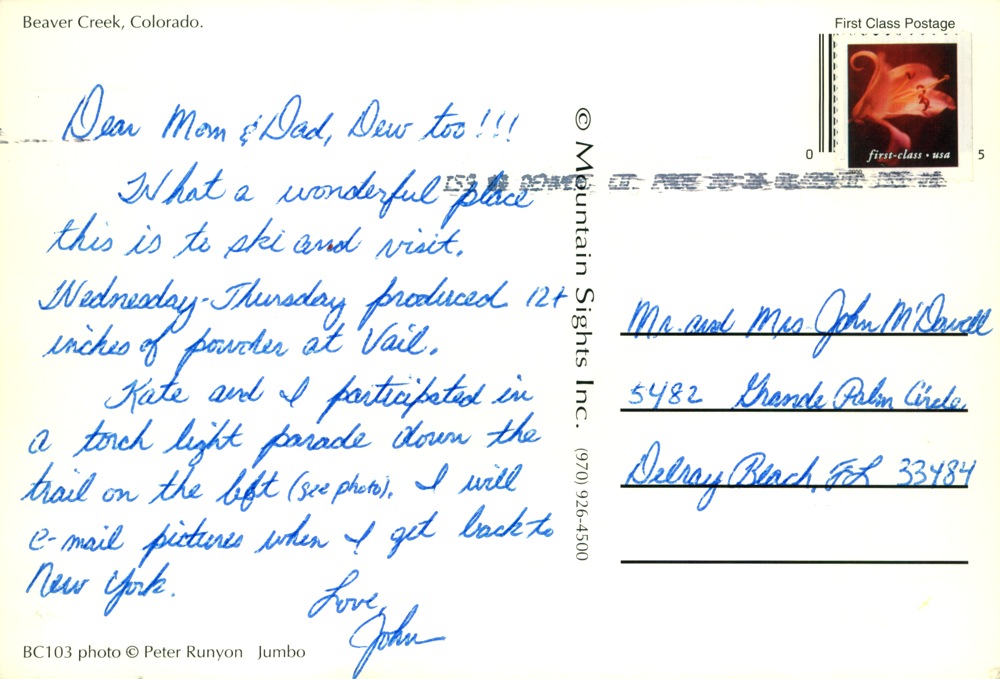 Beaver Creek, Colorado.
Dear Mom & Dad, Dew too!!!
What a wonderful place
this is to ski and visit.
Wednesday-Thursday produced 12+
inches of powder at Vail.
Kate and I participated in
a torch light parade down the
trail on the left (see photo). I will
e-mail pictures when I get back to
New York.
Love,
John
BC103 photo © Peter Runyon Jumbo
© Mountain Sights Inc. (970) 926-4500
First Class Postage
first-class • usa
0 5
Mr. and Mrs. John McDowell
5482 Grande Palm Circle
Delray Beach, FL 33484